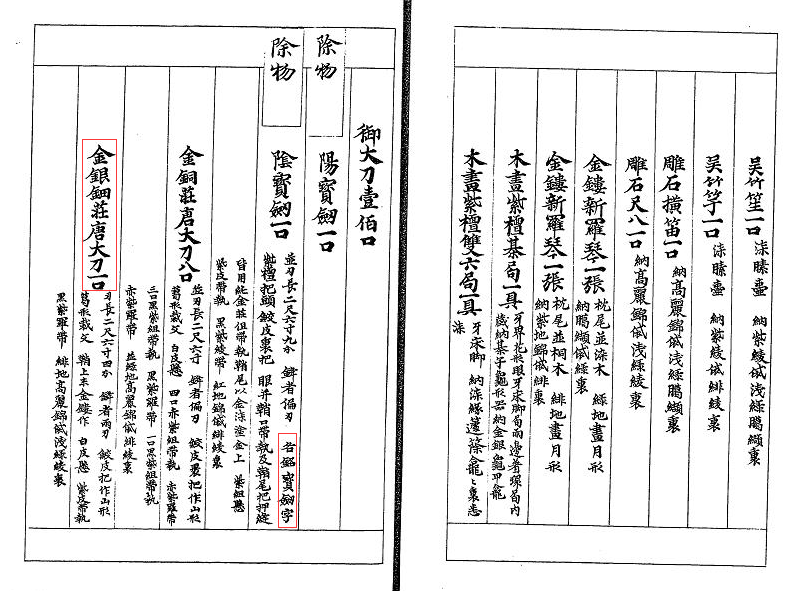 吴竹笙一口 漆臈壷 納紫綾袋浅緑臈纈裏
吴竹竽一口 漆臈壷 納紫綾袋緋綾裏
雕石横笛一口 納高麗錦袋浅緑臈纈裏
雕石尺八一口 納高麗錦袋浅緑綾裏
金鏤新羅琴一張 枕尾並染木 緑地畫月形 納臈纈袋緑裏
金鏤新羅琴一張 枕尾並桐木 緋地畫月形 納紫地錦袋緋裏
木畫紫檀碁局一具 牙界花形眼牙床脚局両邊着環局内 蔵納碁子龜形器納金銀龜甲龕
木畫紫檀雙六局一具 牙床脚 納漆縁籧篨龕
御大刀壹佰口
除物
陽寶劔一口
除物
陰寶劔一口 並刃長二尺六寸九分 鋒者偏刃 名銘寶劔字
紫檀把頭 鮫皮裹把 眼并鞘口帯執及鞘尾把押縫
皆用純金荘但帯執鞘尾以金漆塗金上 紫組懸
紫皮帯執 黒紫綾帯 紅地錦袋緋綾裏
金銅荘唐大刀八口 並刃長二尺六寸 鋒者偏刃 鮫皮裹把作山形
葛形裁文 白皮懸 四口赤紫組帯執 赤紫羅帯
三口黒紫組帯執 黒紫羅帯 一口黒紫組帯執
赤紫羅帯 並緑地高麗錦袋緋綾裏
金銀鈿荘唐大刀一口 刃長二尺六寸四分 鋒者両刃 鮫皮把作山形
葛形裁文 鞘上末金鏤作 白皮懸 紫皮帯執
黒紫羅帯 緋地高麗錦袋浅緑綾裏